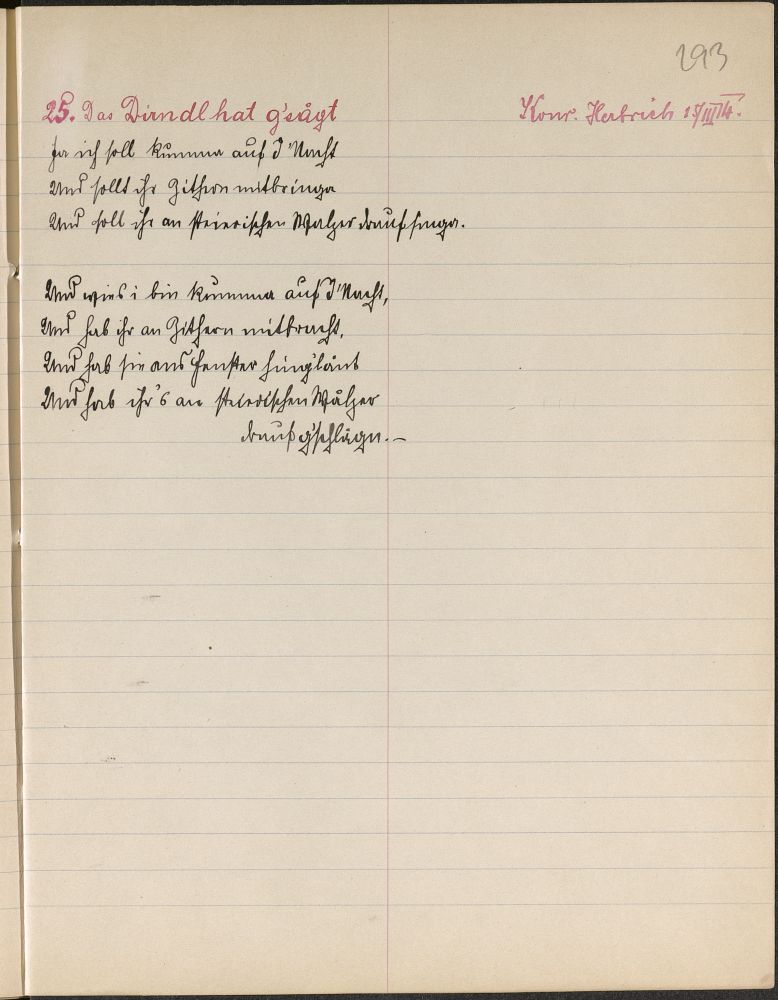 293
25. Das Dirndl hat g'sågt
Konr. Herbrich 15/III 14.
Ja ich soll kumma auf d' Nacht
Und sollt ihr Zithern mitbringa
Und soll ihr an steierischen Walzer draufsinga.
Und wies i bin kumma auf d' Nacht,
Und hab ihr an Zithern mitbracht,
Und hab sie ans Fenster hing'länt
Und hab ihr's an steierischen Wålzer
drauf g'schlågn. –